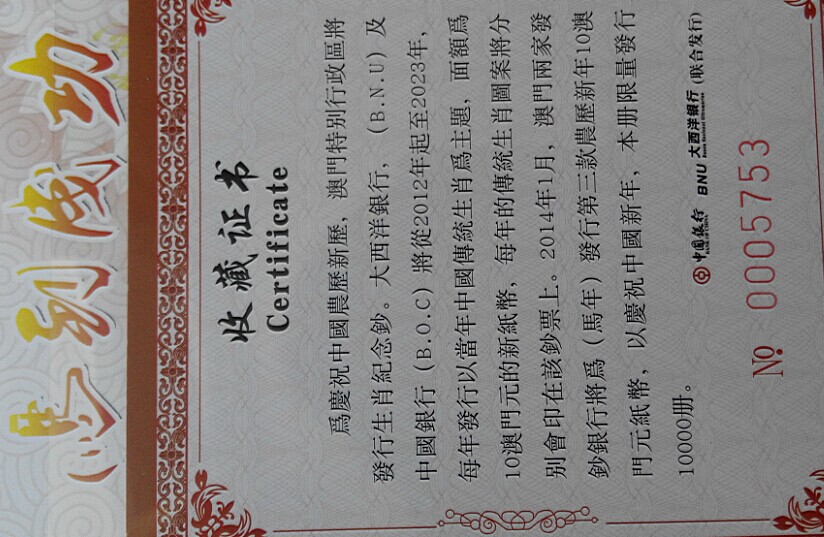 马到成功
收藏证书
Certificate
爲慶祝中國農歷新歷，澳門特别行政區將
發行生肖紀念鈔。大西洋銀行，（B.N.U）及
中國銀行（B.O.C）將從2012年起至2023年，
每年發行以當年中國傳統生肖爲主題，面額爲
10澳門元的新紙幣，每年的傳統生肖圖案將分
别會印在該鈔票上。2014年1月，澳門兩家發
鈔銀行將爲（馬年）發行第三款農歷新年10澳
門元紙幣，以慶祝中國新年，本册限量發行
10000册。
中國銀行 BNU 大西洋銀行 (联合发行)
№ 0005753